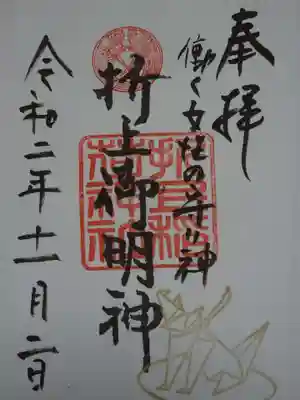 奉拝
働く女性の守り神
折上御明神
折上稲荷神社
令和二年十一月二日